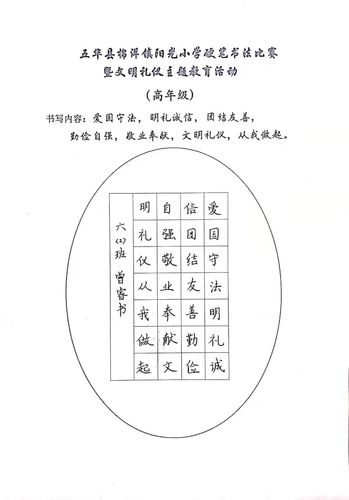 五华县棉洋镇阳光小学硬笔书法比赛
暨文明礼仪主题教育活动
（高年级）
书写内容：爱国守法，明礼诚信，团结友善，
勤俭自强，敬业奉献，文明礼仪，从我做起。
爱国守法明礼诚
信团结友善勤俭
自强敬业奉献文
明礼仪从我做起
六（2）班 曾睿书